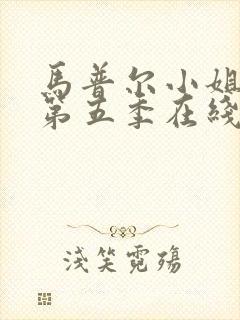 馬普尔小姐
第五季在綫
淺笑霓殤